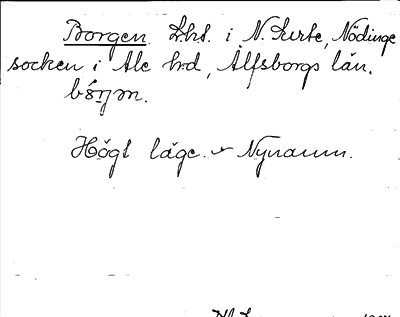 Borgen. Lht. i N. Surte, Nödinge
socken i Ale hd, Älfsborgs län.
Högt läge. Nynamn.